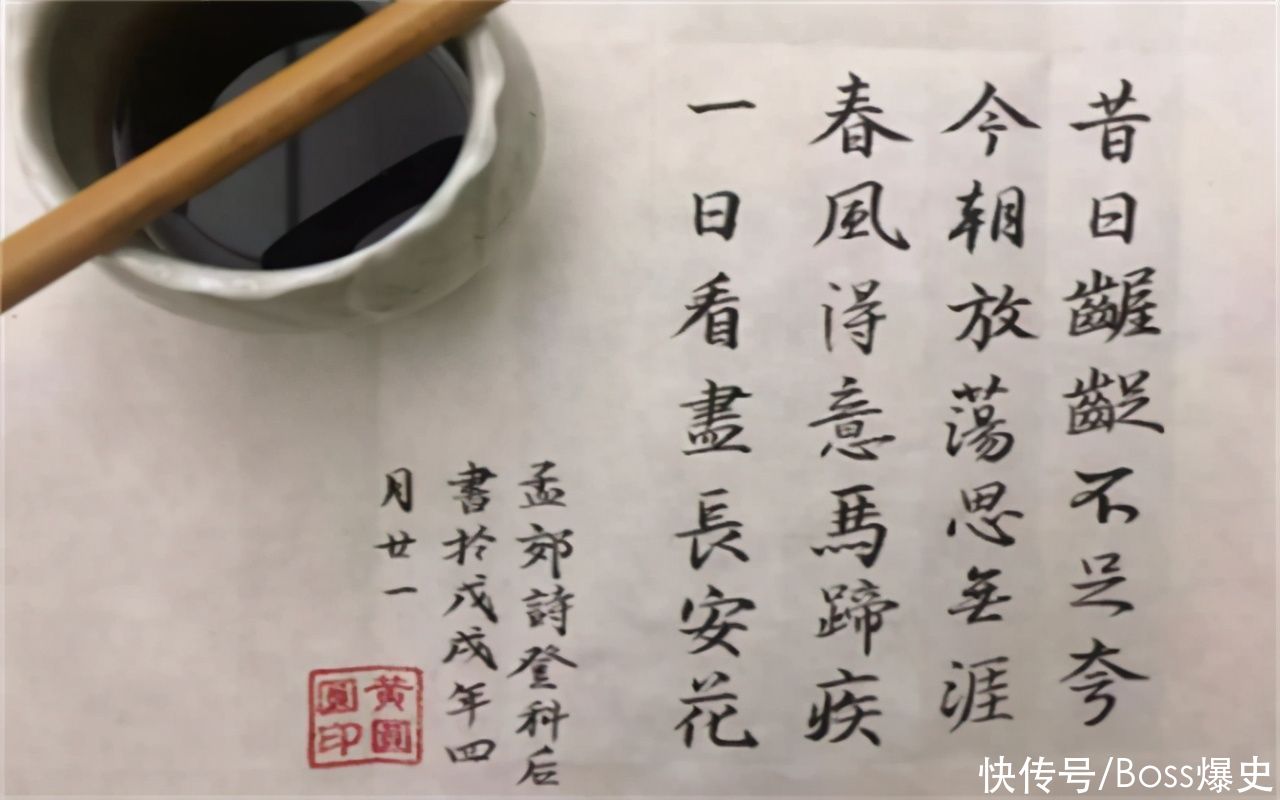 昔日齷齪不足夸
今朝放蕩思無涯
春風得意馬蹄疾
一日看盡長安花
孟郊詩登科后
書於戊戌年四
月廿一
黃圓
圓印
快传号/Boss爆史